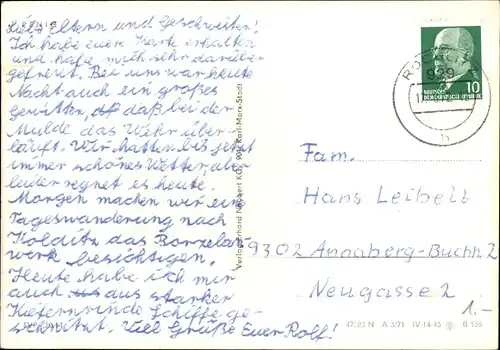 Liebe Eltern und Geschwister!
Ich habe eure Karte erhalten
und habe mich sehr darüber
gefreut. Bei uns war heute
Nacht auch ein großes
gewitter, daß bei der
Mulde das Wehr über-
läuft. Wir hatten bis jetzt
immer schönes Wetter, aber
leider regnet es heute.
Morgen machen wir eine
Tageswanderung nach
Kolditz das Borzelan
werk besichtigen.
Heute habe ich mir
auch aus starker
Kiefernrinde Schiffe ge-
schnitzt. Viel Grüße Euer Rolf!
Verlag Erhard Neubert KG, 90 Karl-Marx-Stadt
DEUTSCHE
DEMOKRATISCHE REPUBLIK
10
929
h
Fam.
Hans Leibelt
9302 Annaberg-Buchh 2
Neugasse 2
1.-
A 3/71 IV-14-45 B 156